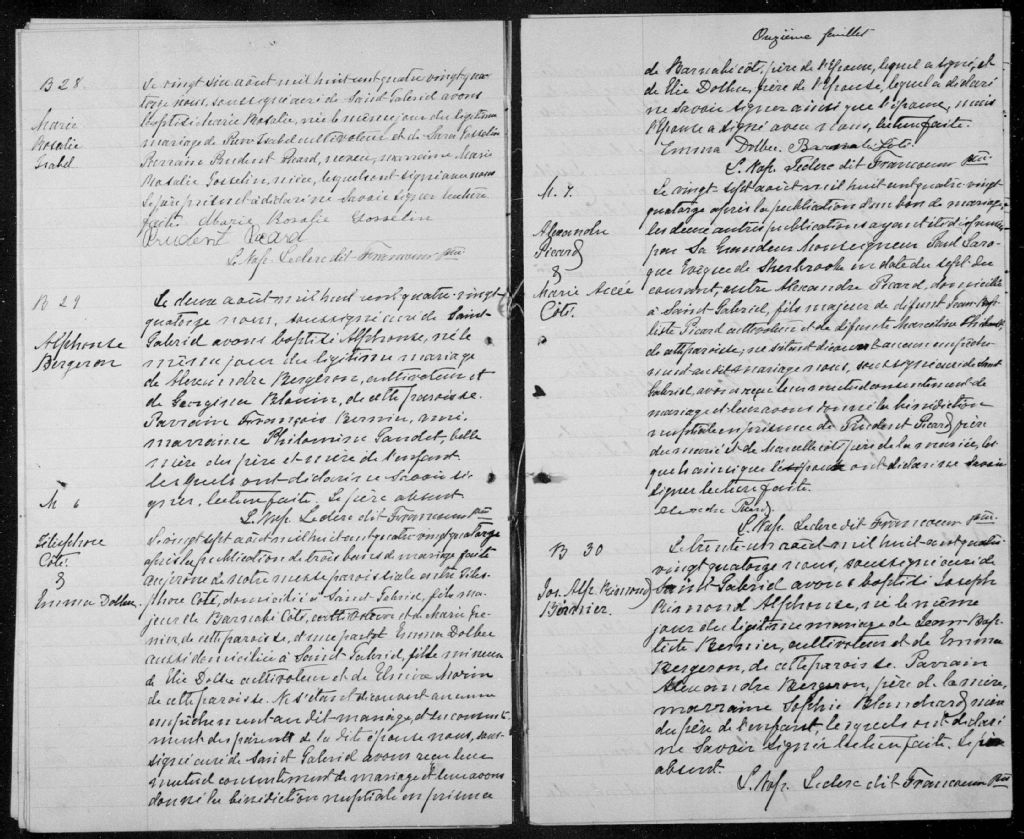 B 28.
Marie
Rosalie
Isabel
Le vingt six août mil huit cent quatre vingt qua
torze nous, soussigné curé de Saint Gabriel avons
baptisé Marie Rosalie, née le même jour du légitime
mariage de Isabel cultivateur et de Sara Gosselin
Parrain Prudent Picard, marraine Marie
Rosalie Gosselin, nièce, lesquels ont signé avec nous
Le père présent a déclaré ne savoir signer lecture
faite. Marie Rosalie Gosselin
Prudent Picard
L. Nap. Leclerc dit Francoeur Ptre
B 29
Alphonse
Bergeron
Le deux août mil huit cent quatre vingt
quatorze nous, soussigné curé de Saint
Gabriel avons baptisé Alphonse, né le
même jour du légitime mariage
de Alexandre Bergeron, cultivateur et
de Georgina Blouin, de cette paroisse.
Parrain François Bernier, ami,
marraine Philomène Gaudet, belle
mère du père et mère de l'enfant
lesquels ont déclaré ne savoir si
gner, lecture faite. Le père absent
L. Nap. Leclerc dit Francoeur Ptre
M 6
Télesphore
Côté
&
Emma Dolbec
Le vingt sept août mil huit cent quatre vingt quatorze
après la publication de trois bans de mariage faite
au prône de notre messe paroissiale entre Téles-
phore Côté, domicilié à Saint Gabriel, fils ma-
jeur de Barnabé Côté, cultivateur et de Marie Gre-
nier de cette paroisse, d'une part et Emma Dolbec
aussi domiciliée à Saint Gabriel, fille mineure
de Elie Dolbec cultivateur et de Morin
de cette paroisse. Ne s'étant découvert aucun
empêchement au dit mariage, et du consente-
ment des parents de la dite épouse nous, sous-
signé curé de Saint Gabriel avons reçu leur
mutuel consentement de mariage et leur avons
donné la bénédiction nuptiale en présence
Onzième feuillet
de Barnabé Côté, père de l'Époux, lequel a signé, et
de Elie Dolbec, père de l'Épouse, lequel a déclaré
ne savoir signer ainsi que l'époux, mais
l'Épouse a signé avec nous, lecture faite.
Emma Dolbec Barnabé Côté.
L. Nap. Leclerc dit Francoeur Ptre
M. 7
Alexandre
Picard
&
Marie
Côté.
Le vingt-sept août mil huit cent quatre vingt
quatorze après la publication d'un ban de mariage,
les deux autres publications ayant été dispensées
par Sa Grandeur Monseigneur Paul Laro-
que Evêque de Sherbrooke en date du sept du
courant, entre Alexandre Picard, domicilié
à Saint Gabriel, fils majeur de défunt Jean Bap-
tiste Picard cultivateur et de défunte Marceline
de cette paroisse; ne s'étant découvert aucun empêche
ment au dit mariage nous, soussigné curé de Saint
Gabriel, avons reçu leur mutuel consentement de
mariage et leur avons donné la bénédiction
nuptiale en présence de Prudent Picard, père
du marié et de Marcel Côté père de la mariée, les
quels ainsi que les époux ont déclaré ne savoir
signer lecture faite.
Alexandre Picard
L. Nap. Leclerc dit Francoeur Ptre
B 30
Jos. Alp. Rimond
Bernier.
Le trente-un août mil huit cent quatre
vingt quatorze nous, soussigné curé de
Saint Gabriel avons baptisé Joseph
Rimond Alphonse, né le même
jour du légitime mariage de Jean-Bap-
tiste Bernier, cultivateur et de Emma
Bergeron, de cette paroisse. Parrain
Alexandre Bergeron, père de la mère,
marraine Sophie Blanchard, mère
du père de l'enfant, lesquels ont déclaré
ne savoir signer lecture faite. Le père
absent.
L. Nap. Leclerc dit Francoeur Ptre